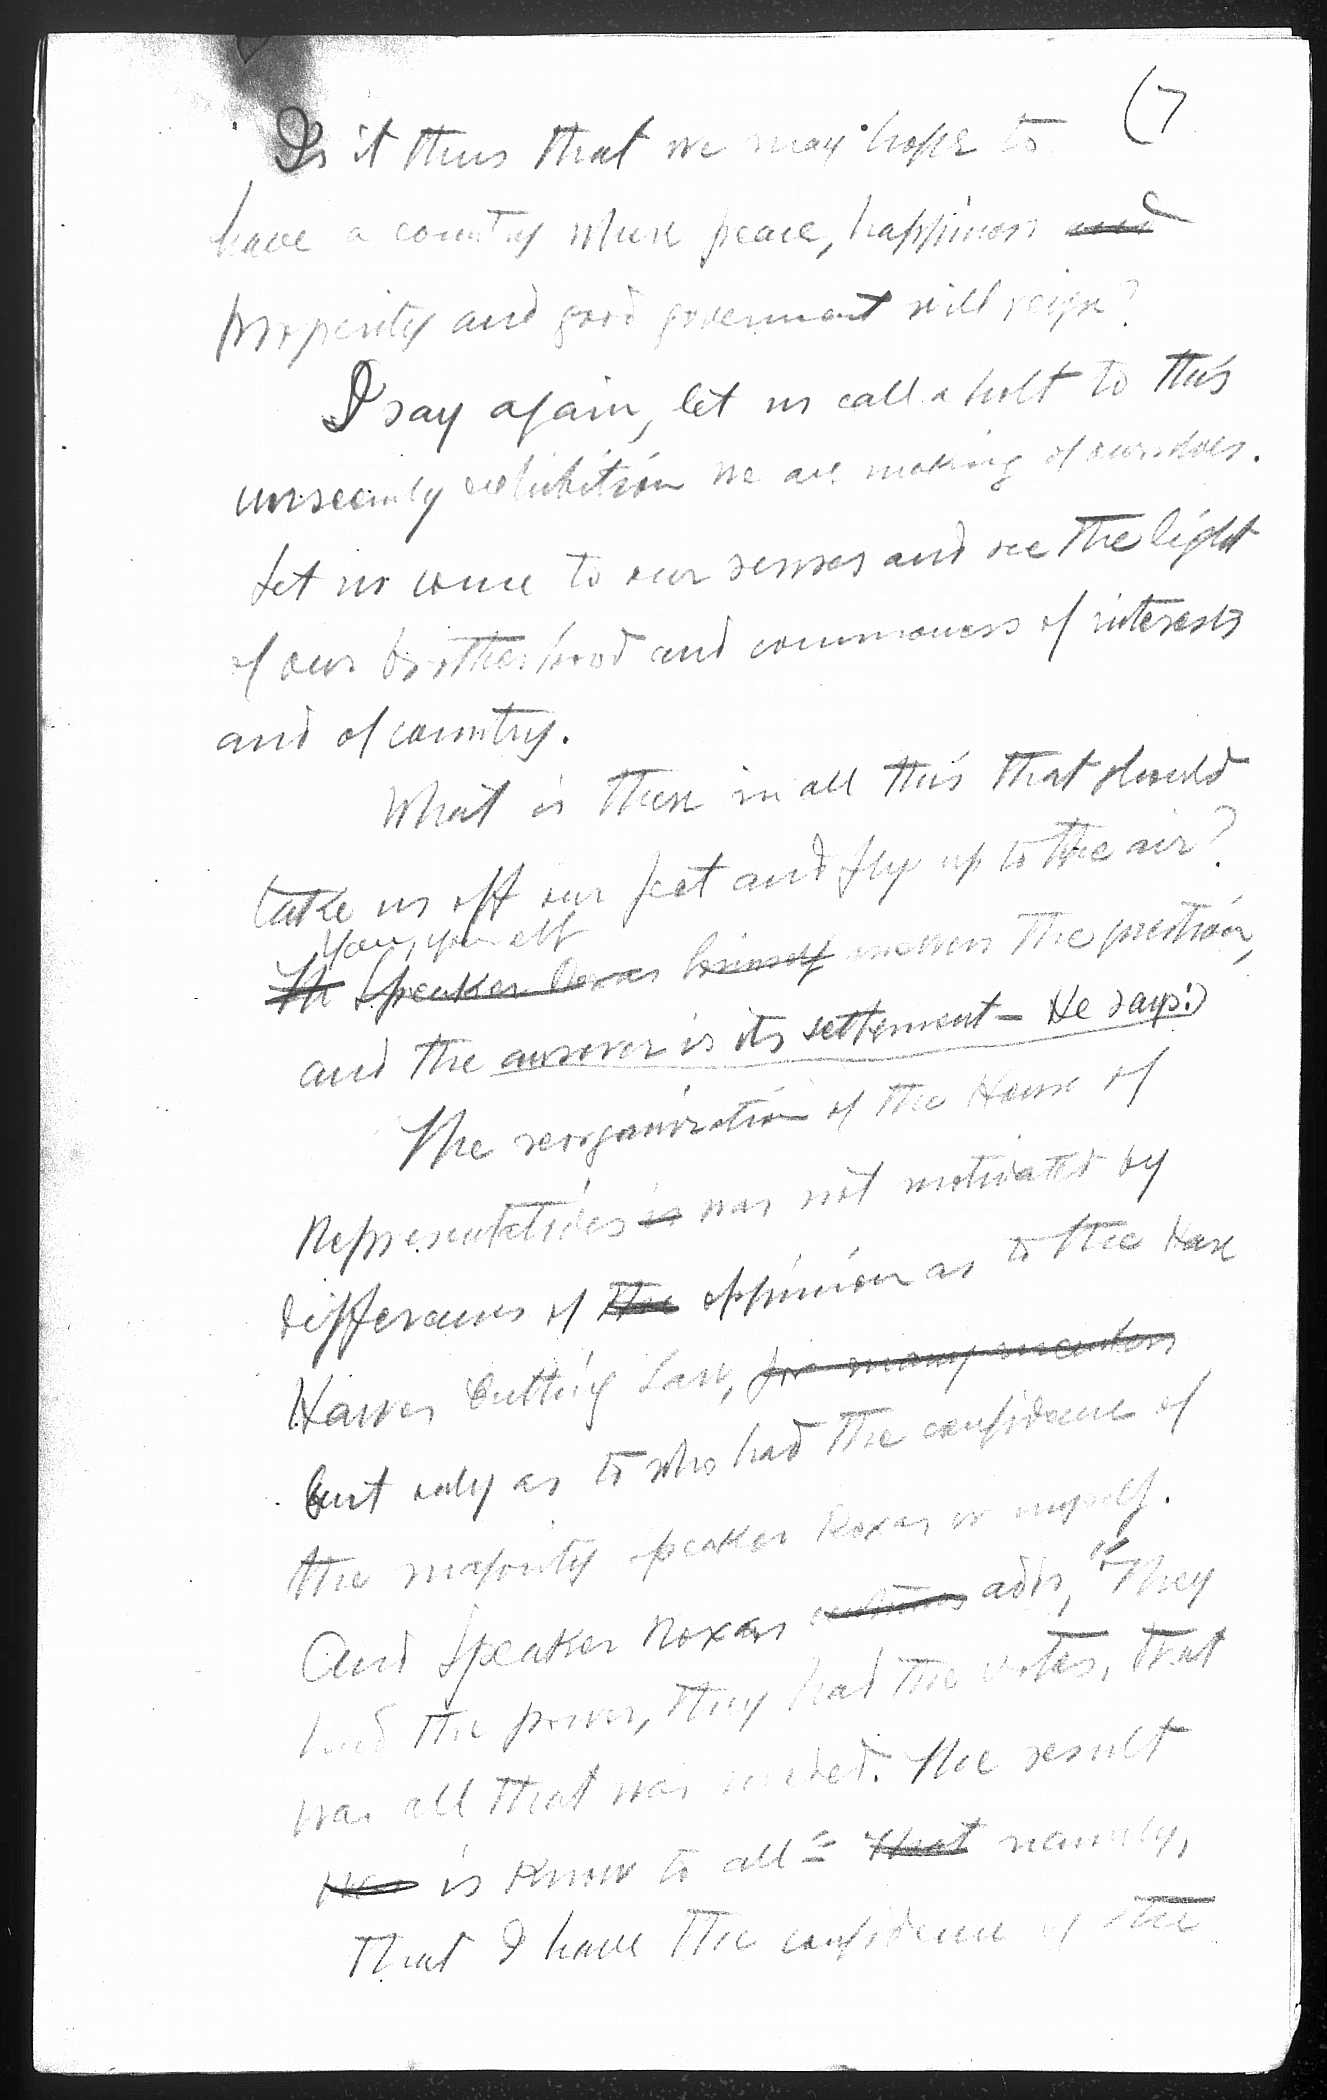 (7
Is it thus that we may hope to
have a country where peace, happiness and
prosperity and good goverment will reign?
I say again, let us call a holt to this
unseemly exhibition we are making of ourselves.
Let us come to our senses and see the light
of our brotherhood and commoness of interests
and of country.
What is there in all this that should
take us off our feet and fly up to the air?
You, yourself
The Speaker Roxas himself answers the question,
and the answer is its settlement - He says:
The reorganization of the House of
Representatives is was not motivated by
differences of the oppinion as to the Hare
Hawes Cutting Law, for many members
but only as to who had the confidence of
the majority speaker Roxas or myself.
And Speaker Roxas adds, "They
had the power, they had the votes, that
was all that was needed. The result
was is know to all = that namely,
that I have the confidence of the